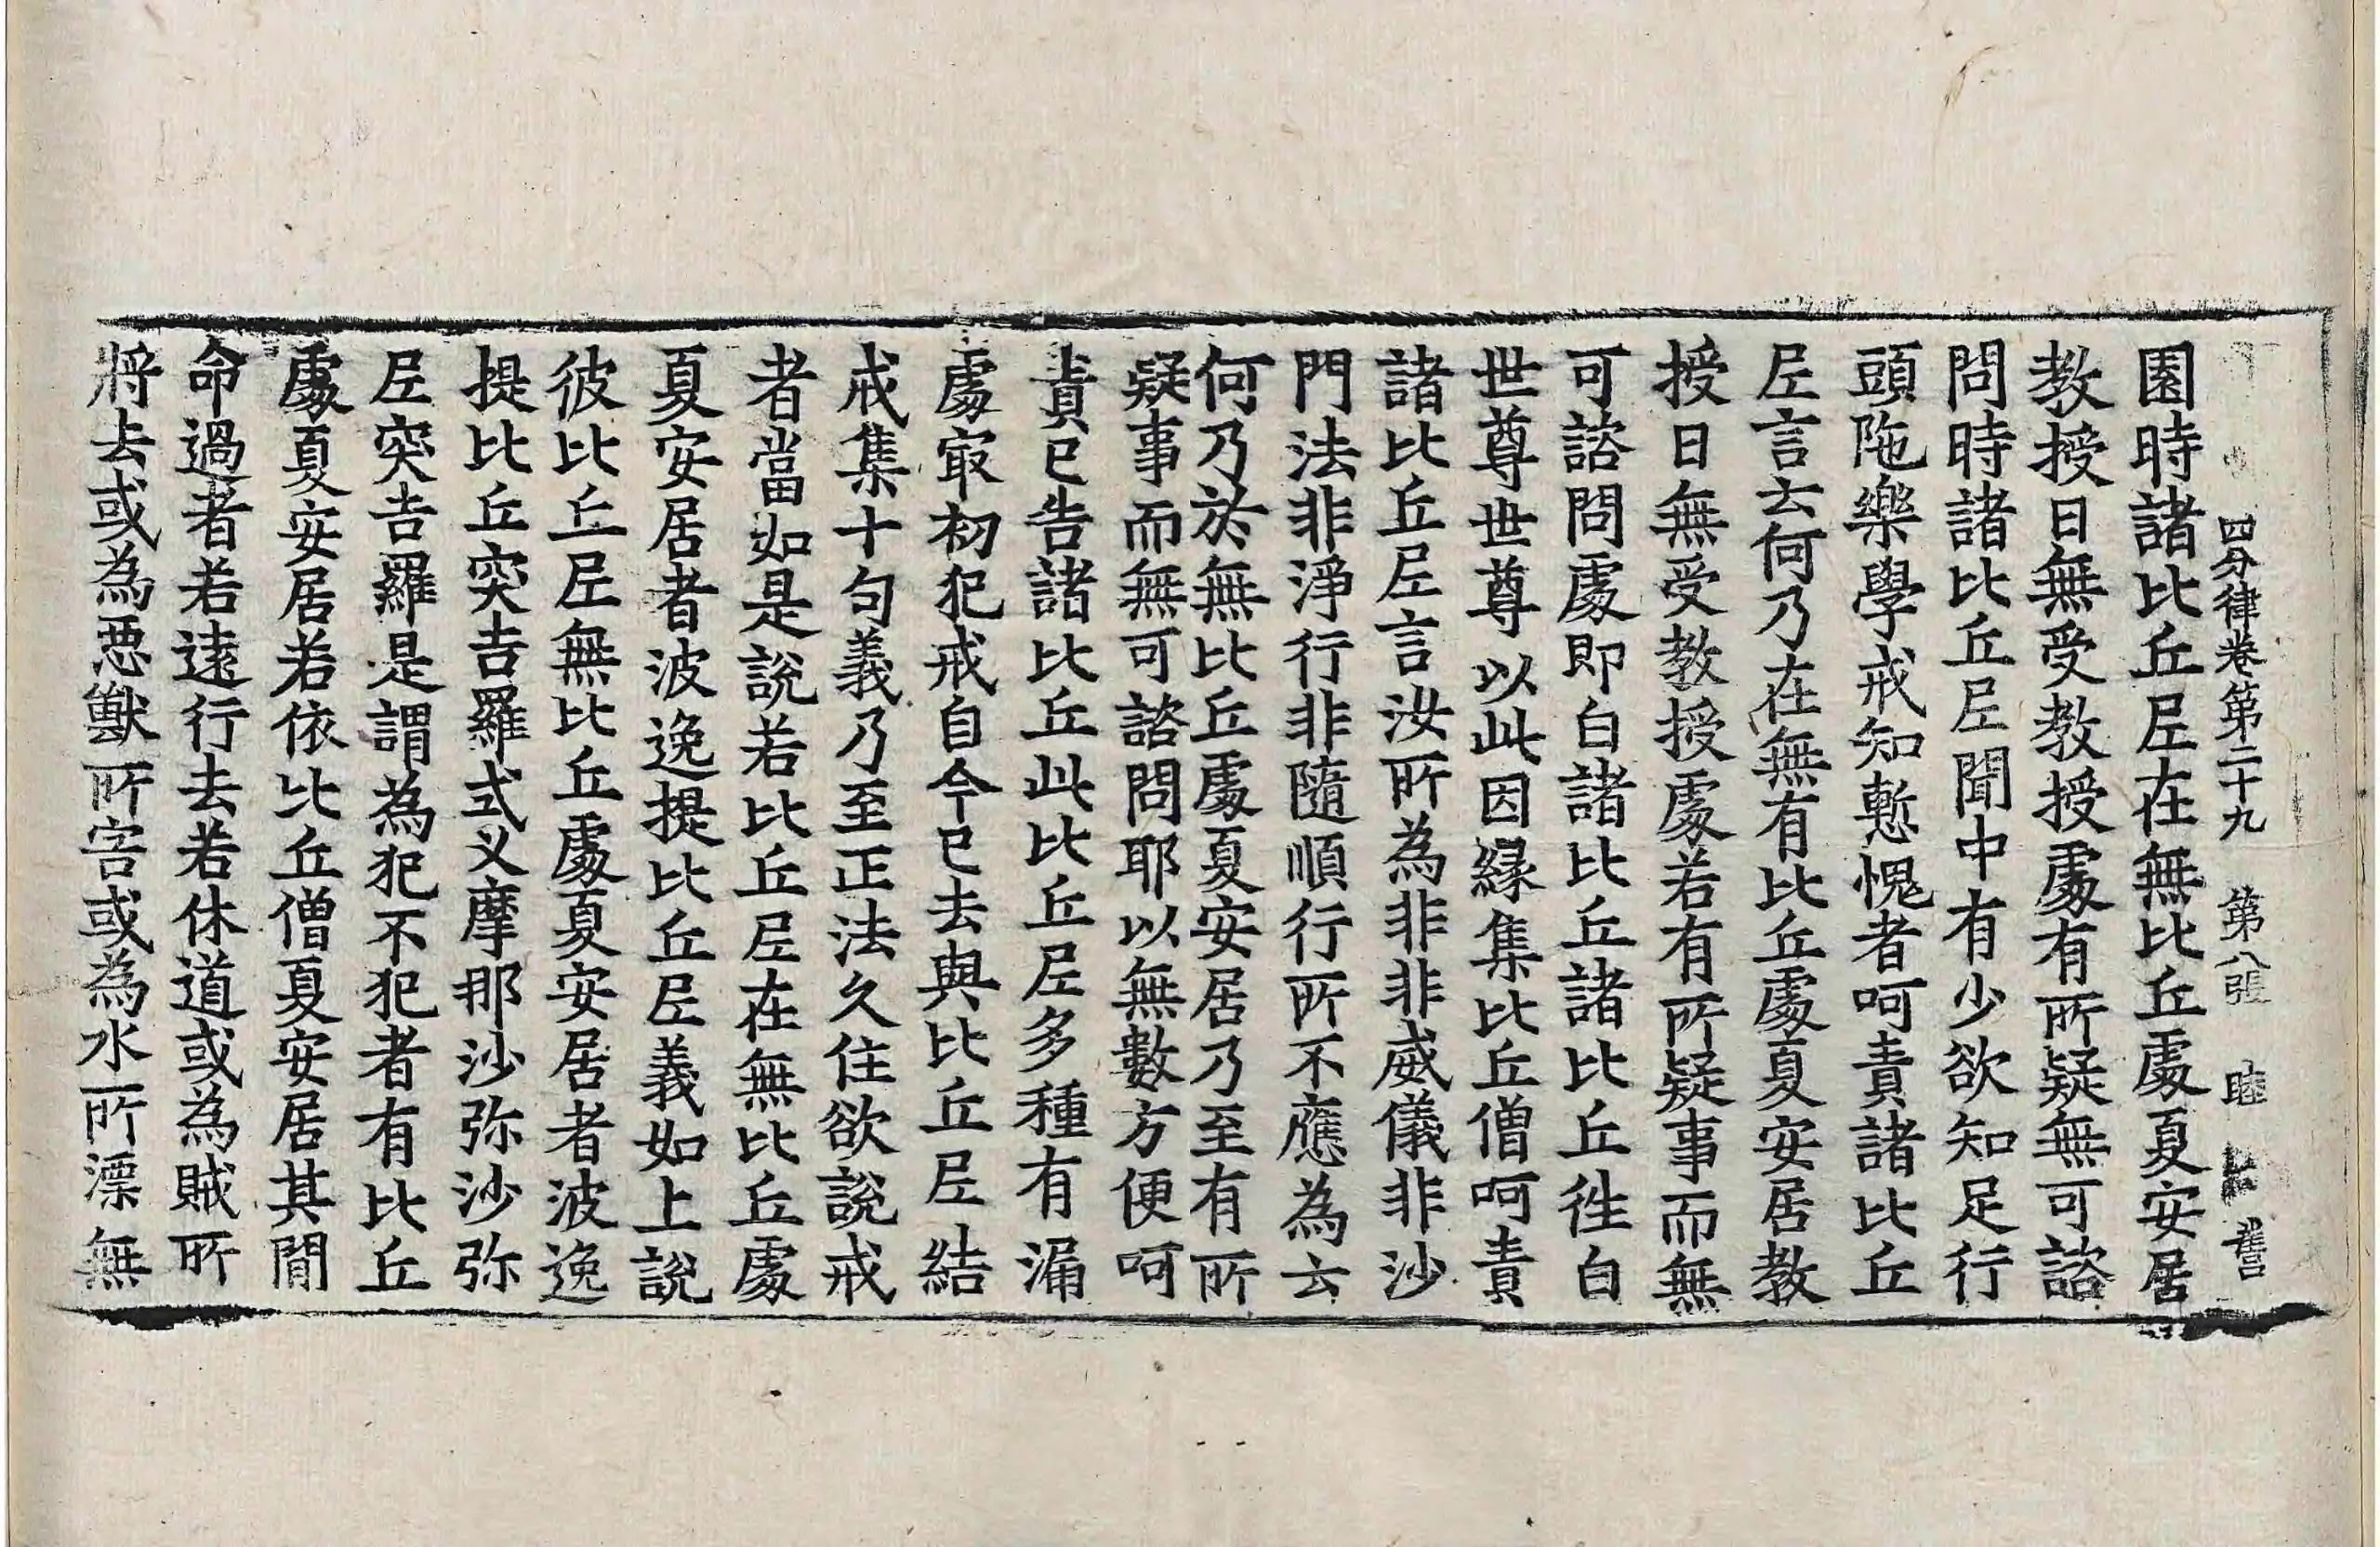 四分律卷第二十九 第八張 睦
園時諸比丘尼在無比丘處夏安居
教授日無受教授處有所疑無可諮
問時諸比丘尼聞中有少欲知足行
頭陁樂學戒知慙愧者呵責諸比丘
尼言云何乃在無有比丘處夏安居教
授日無受教授處若有所疑事而無
可諮問處即白諸比丘諸比丘徃白
世尊世尊以此因縁集比丘僧呵責
諸比丘尼言汝所為非非威儀非沙
門法非淨行非隨順行所不應為云
何乃於無比丘處夏安居乃至有所
疑事而無可諮問耶以無數方便呵
責已告諸比丘此比丘尼多種有漏
處㝡初犯戒自今已去與比丘尼結
戒集十句義乃至正法久住欲說戒
者當如是說若比丘尼在無比丘處
夏安居者波逸提比丘尼義如上說
彼比丘尼無比丘處夏安居者波逸
提比丘突吉羅式叉摩那沙弥沙弥
尼突吉羅是謂為犯不犯者有比丘
處夏安居若依比丘僧夏安居其閒
命過者若遠行去若休道或為賊所
將去或為惡獸所害或為水所漂無